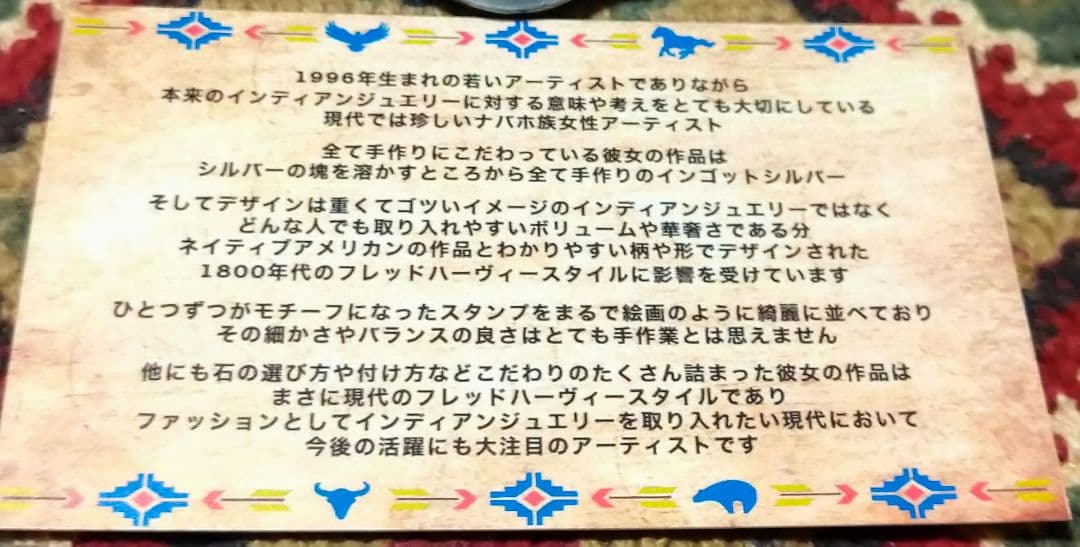 1996年生まれの若いアーティストでありながら
本来のインディアンジュエリーに対する意味や考えをとても大切にしている
現代では珍しいナバホ族女性アーティスト
全て手作りにこだわっている彼女の作品は
シルバーの塊を溶かすところから全て手作りのインゴットシルバー
そしてデザインは重くてゴツいイメージのインディアンジュエリーではなく
どんな人でも取り入れやすいボリュームや華奢さである分
ネイティブアメリカンの作品とわかりやすい柄や形でデザインされた
1800年代のフレッドハーヴィースタイルに影響を受けています
ひとつずつがモチーフになったスタンプをまるで絵画のように綺麗に並べており
その細かさやバランスの良さはとても手作業とは思えません
他にも石の選び方や付け方などこだわりのたくさん詰まった彼女の作品は
まさに現代のフレッドハーヴィースタイルであり
ファッションとしてインディアンジュエリーを取り入れたい現代において
今後の活躍にも大注目のアーティストです